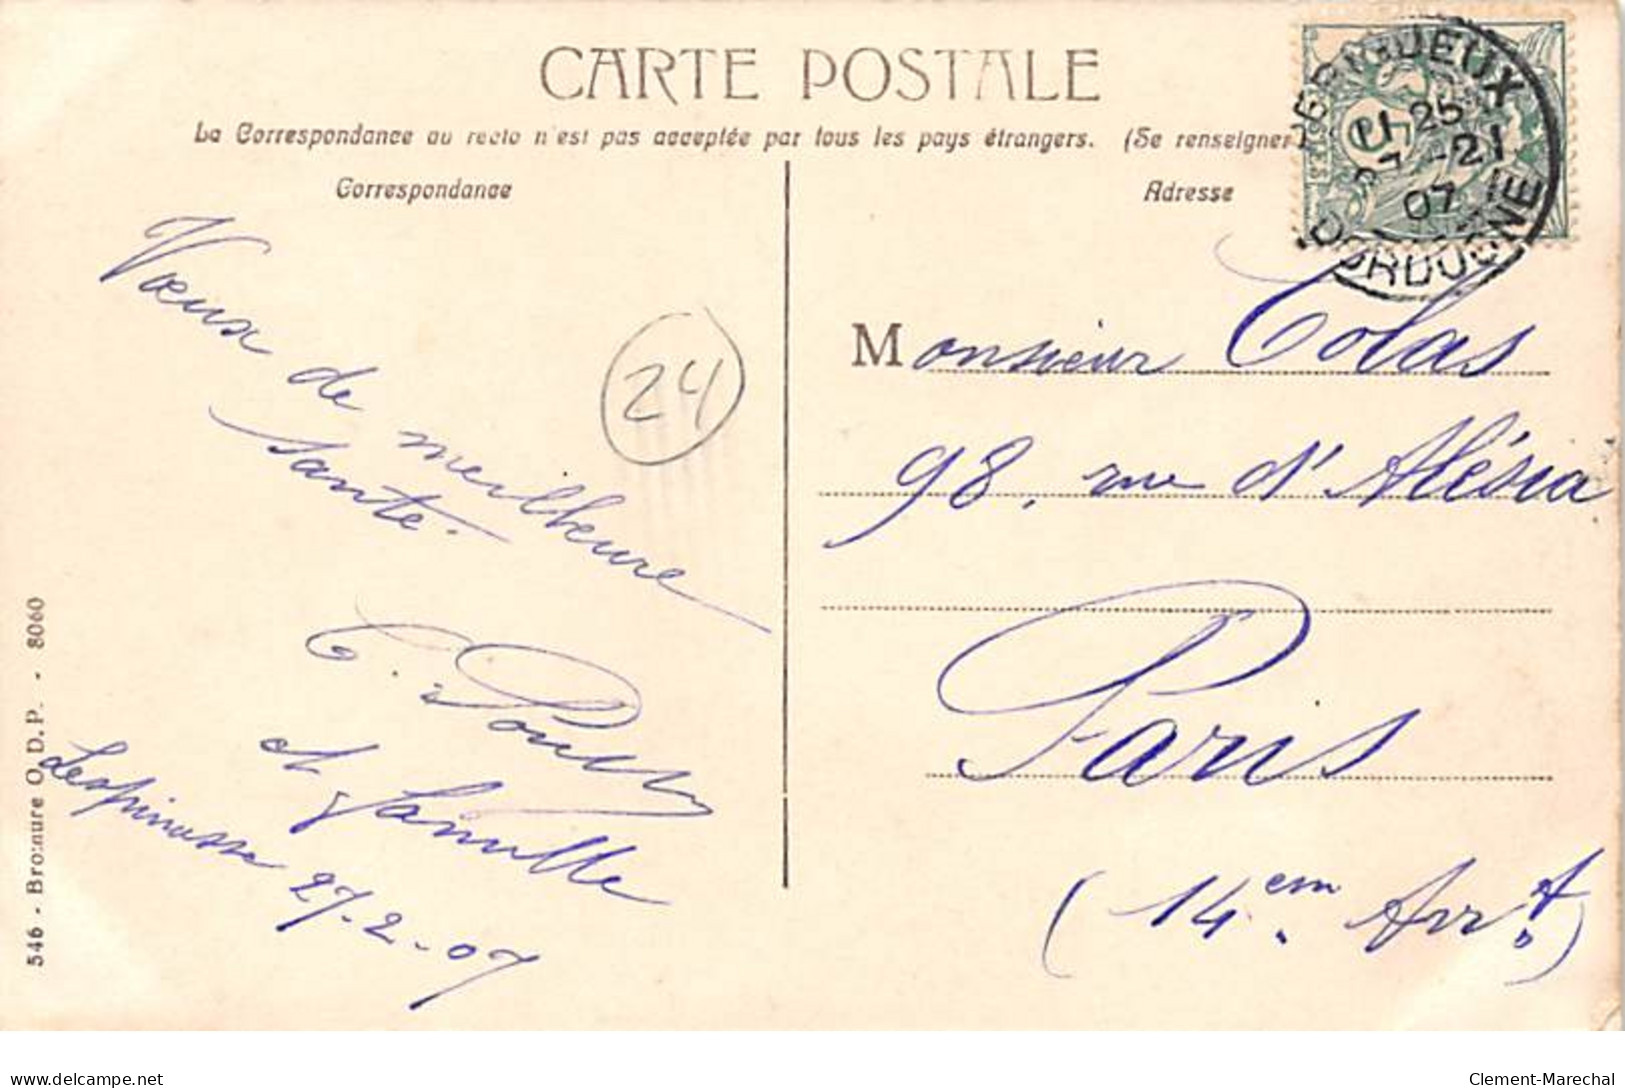 CARTE POSTALE
La Correspondance au recto n'est pas acceptée par tous les pays étrangers. (Se renseigner
Correspondance
Adresse
PERIGUEUX
25
-21
07
DORDOGNE
Vœux de meilheure
santé.
24
et famille
Lespinasse 27-2-07
Monsieur Colas
98, rue d'Alésia
Paris
(14em. Arrt)
546 - Bromure O.D.P. - 8060
delcampe.net
Clement-Marechal